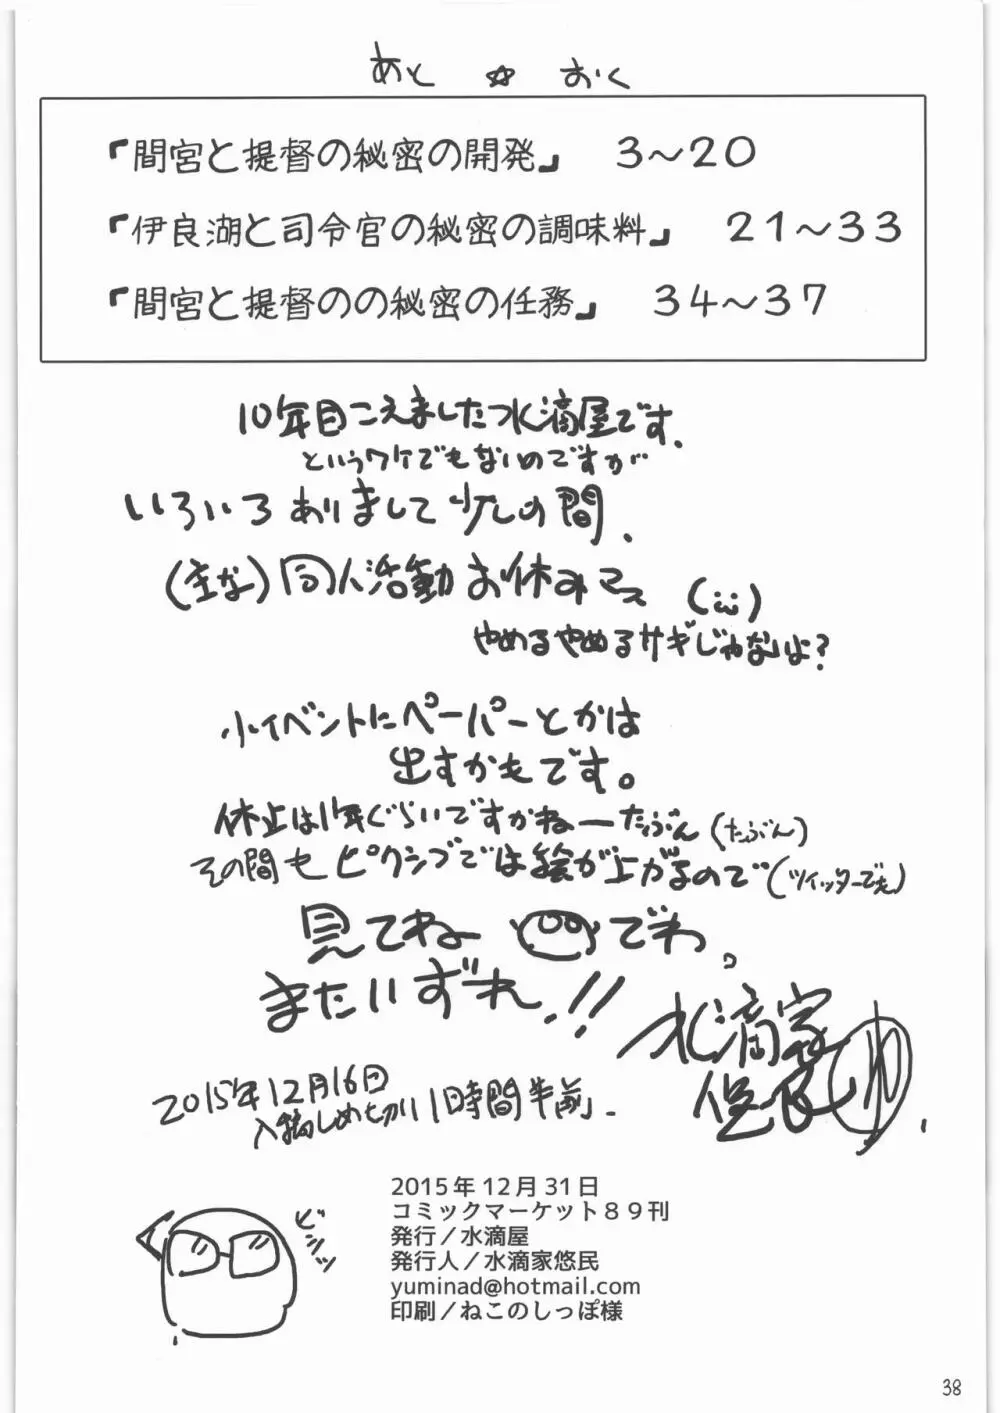 あと☆おく
『間宮と提督の秘密の開発』 3～20
『伊良湖と司令官の秘密の調味料』 21～33
『間宮と提督のの秘密の任務』 34～37
10年目こえました水滴屋です.
というワケでもないのですが
いろいろありまして少しの間.
(主な)同人活動お休みでス (;ω;)
やめるやめるサギじゃないよ?
小イベントにペーパーとかは
出すかもです。
休止は1年ぐらいですかねーたぶん(たぶん)
その間もピクシブでは絵が上がるので(ツイッターでも)
見てねー でわ。
またいずれ.!!
水滴家
悠民
2015年12月16日
入稿しめ切り1時間半前.
ビシッ
2015年12月31日
コミックマーケット89刊
発行／水滴屋
発行人／水滴家悠民
yuminad@hotmail.com
印刷／ねこのしっぽ様
38